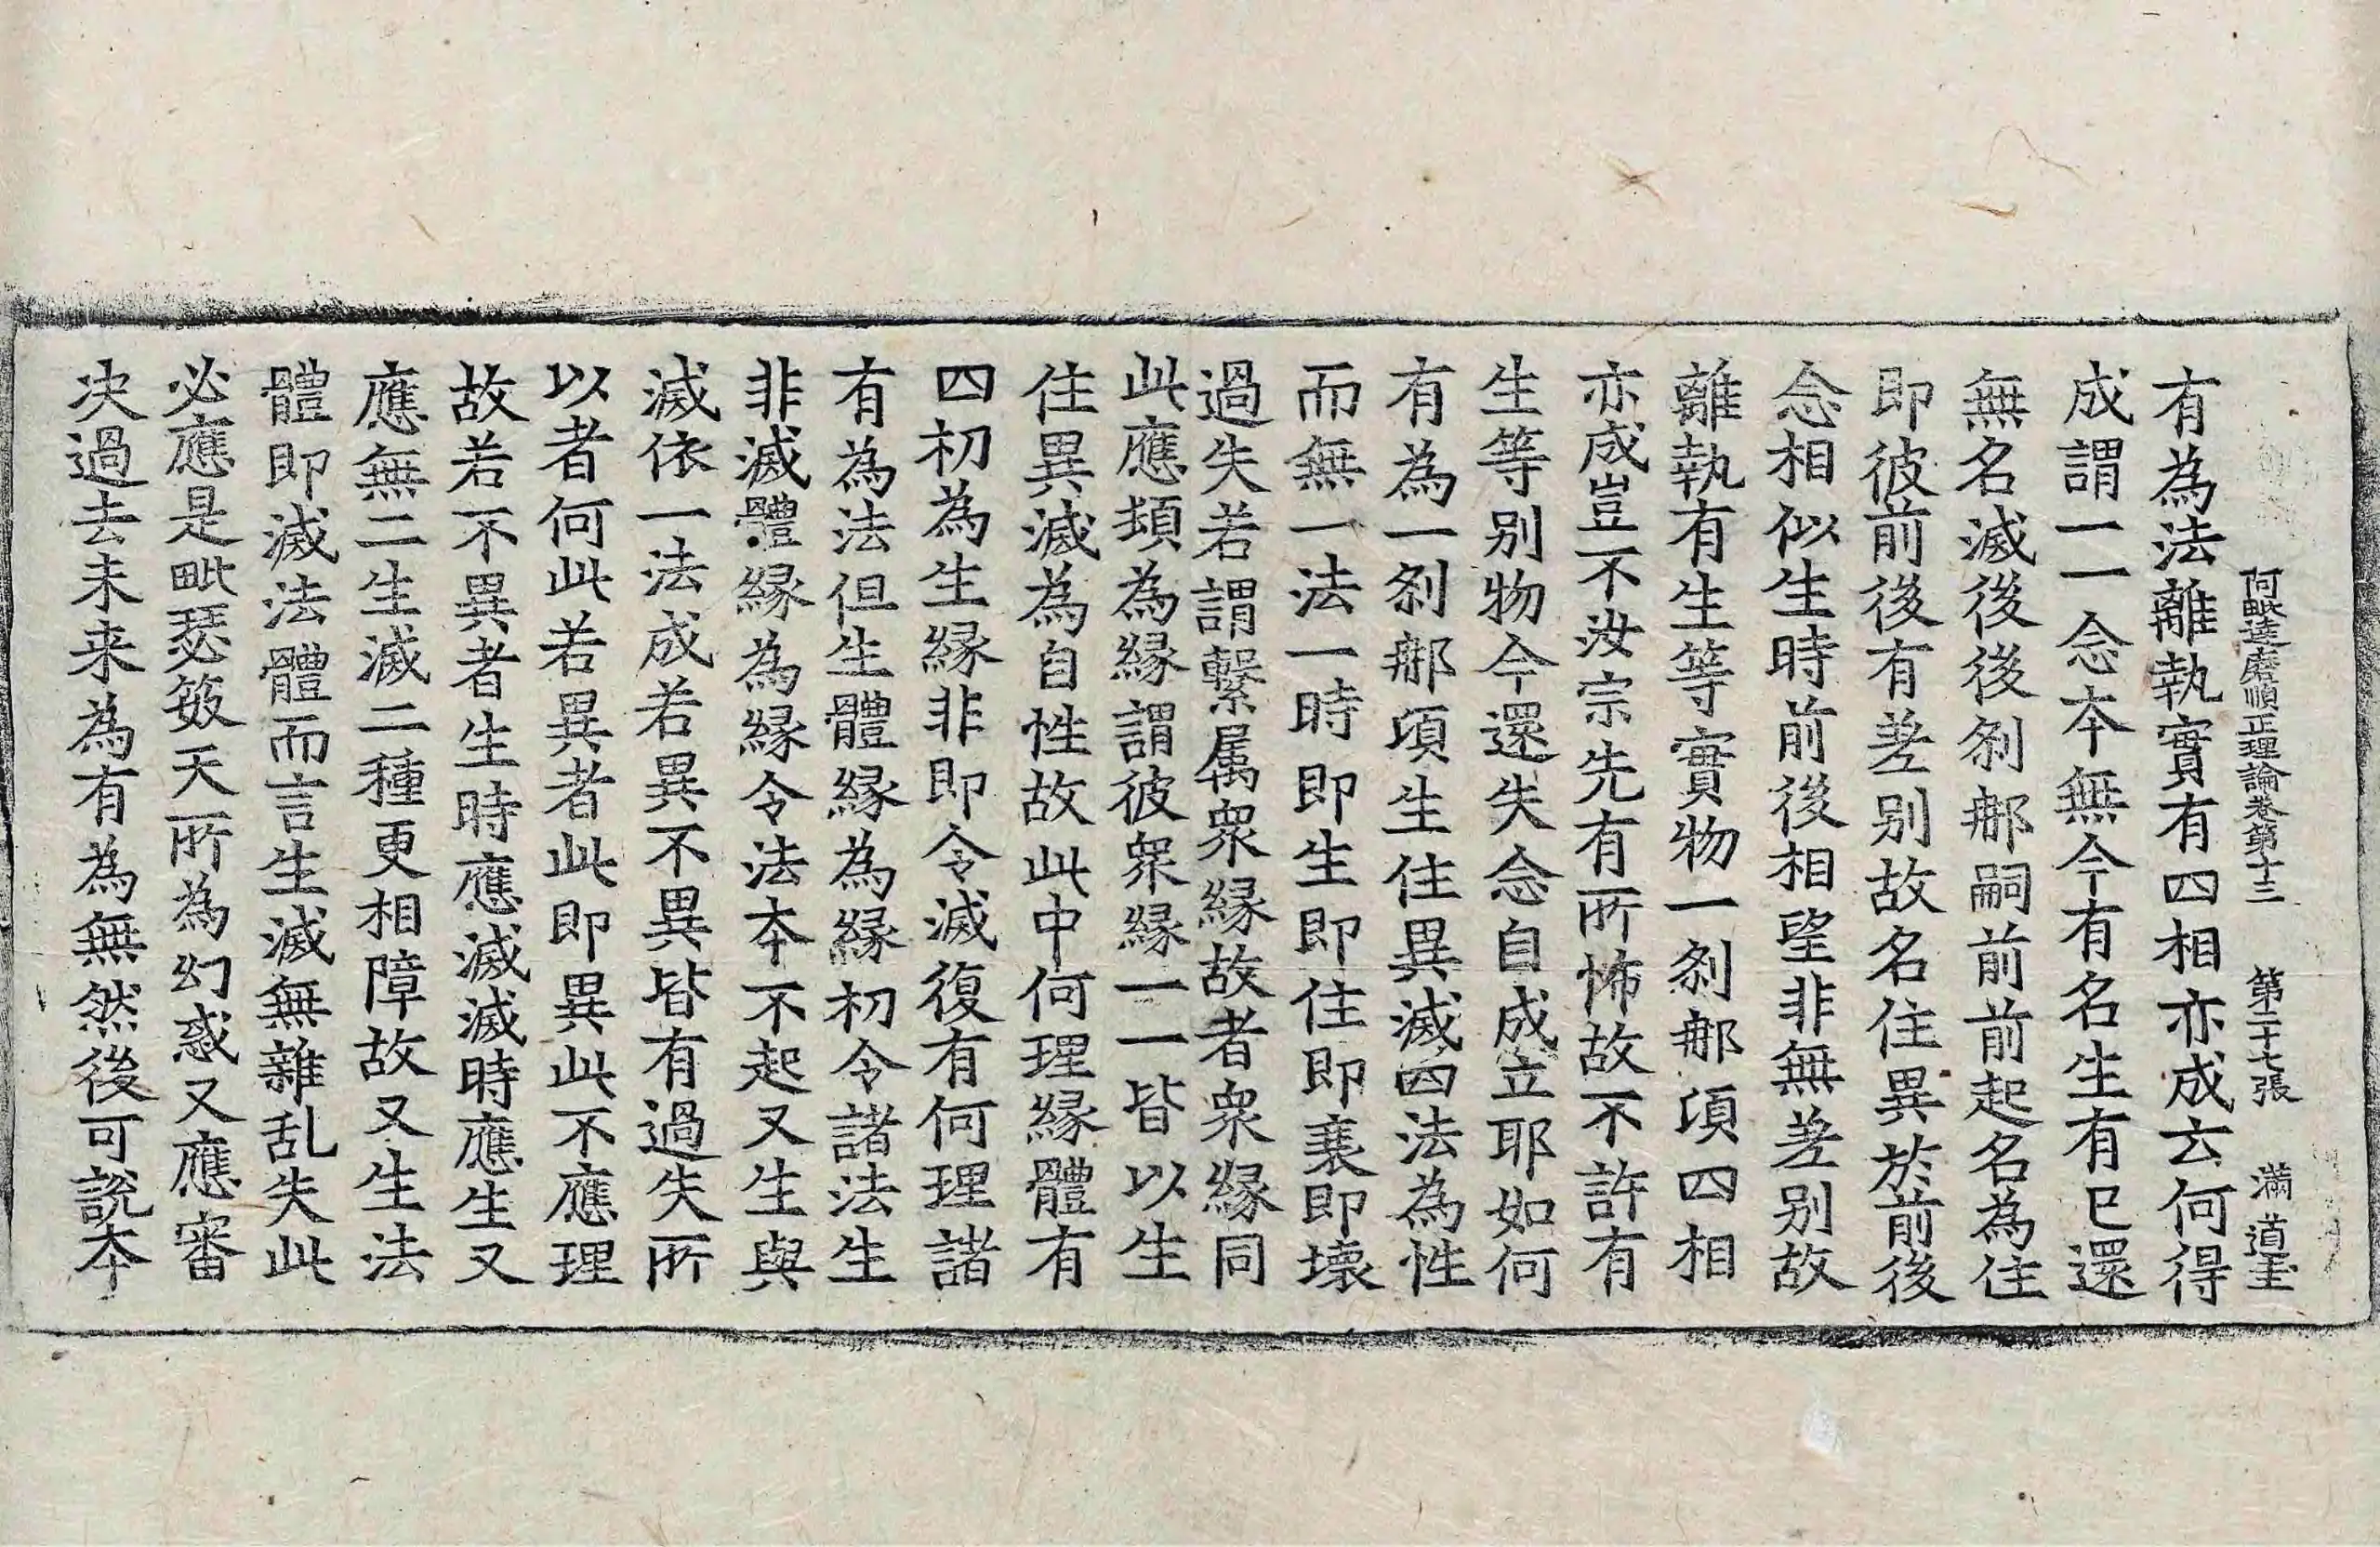 阿毗達磨順正理論卷第十三 第二十七張 滿 道玄
有為法離執實有四相亦成云何得
成謂一一念本無今有名生有已還
無名滅後後刹那嗣前前起名為住
即彼前後有差別故名住異於前後
念相似生時前後相望非無差別故
離執有生等實物一刹那頃四相
亦成豈不汝宗先有所怖故不許有
生等別物今還失念自成立耶如何
有為一刹那頃生住異滅四法為性
而無一法一時即生即住即衰即壞
過失若謂繫属衆緣故者衆緣同
此應頻為緣謂彼衆緣一一皆以生
住異滅為自性故此中何理緣體有
四初為生緣非即令滅復有何理諸
有為法但生體緣為緣初令諸法生
非滅體緣為緣令法本不起又生與
滅依一法成若異不異皆有過失所
以者何此若異者此即異此不應理
故若不異者生時應滅滅時應生又
應無二生滅二種更相障故又生法
體即滅法體而言生滅無雜乱失此
必應是毗瑟笯天所為幻惑又應審
决過去未来為有為無然後可說本